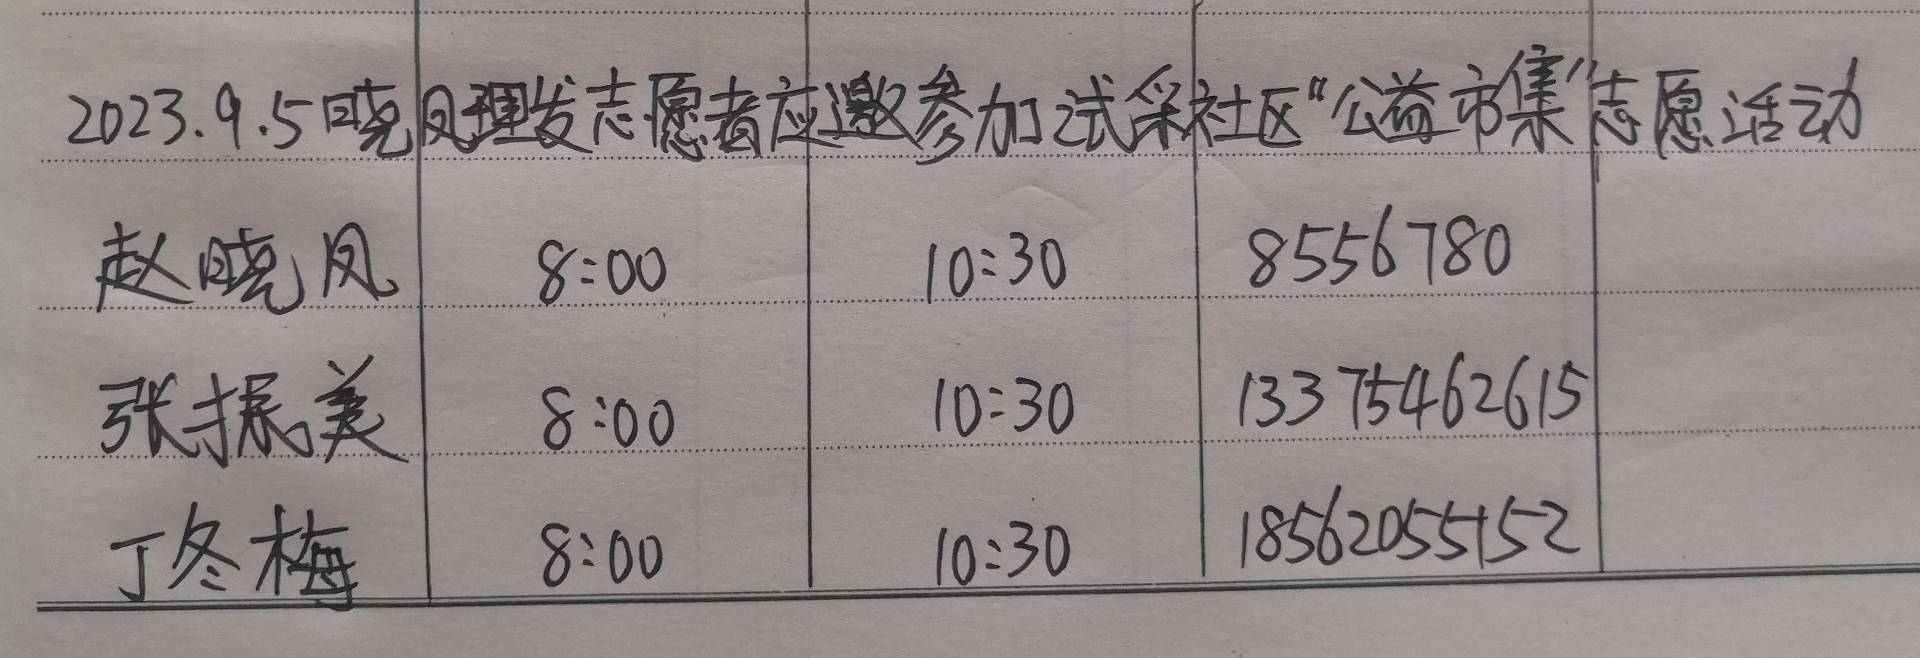 2023.9.5晓凤理发志愿者应邀参加试采社区"公益市集"志愿活动
赵晓凤 8:00 10:30 8556780
张振美 8:00 10:30 13375462615
丁冬梅 8:00 10:30 18562055152